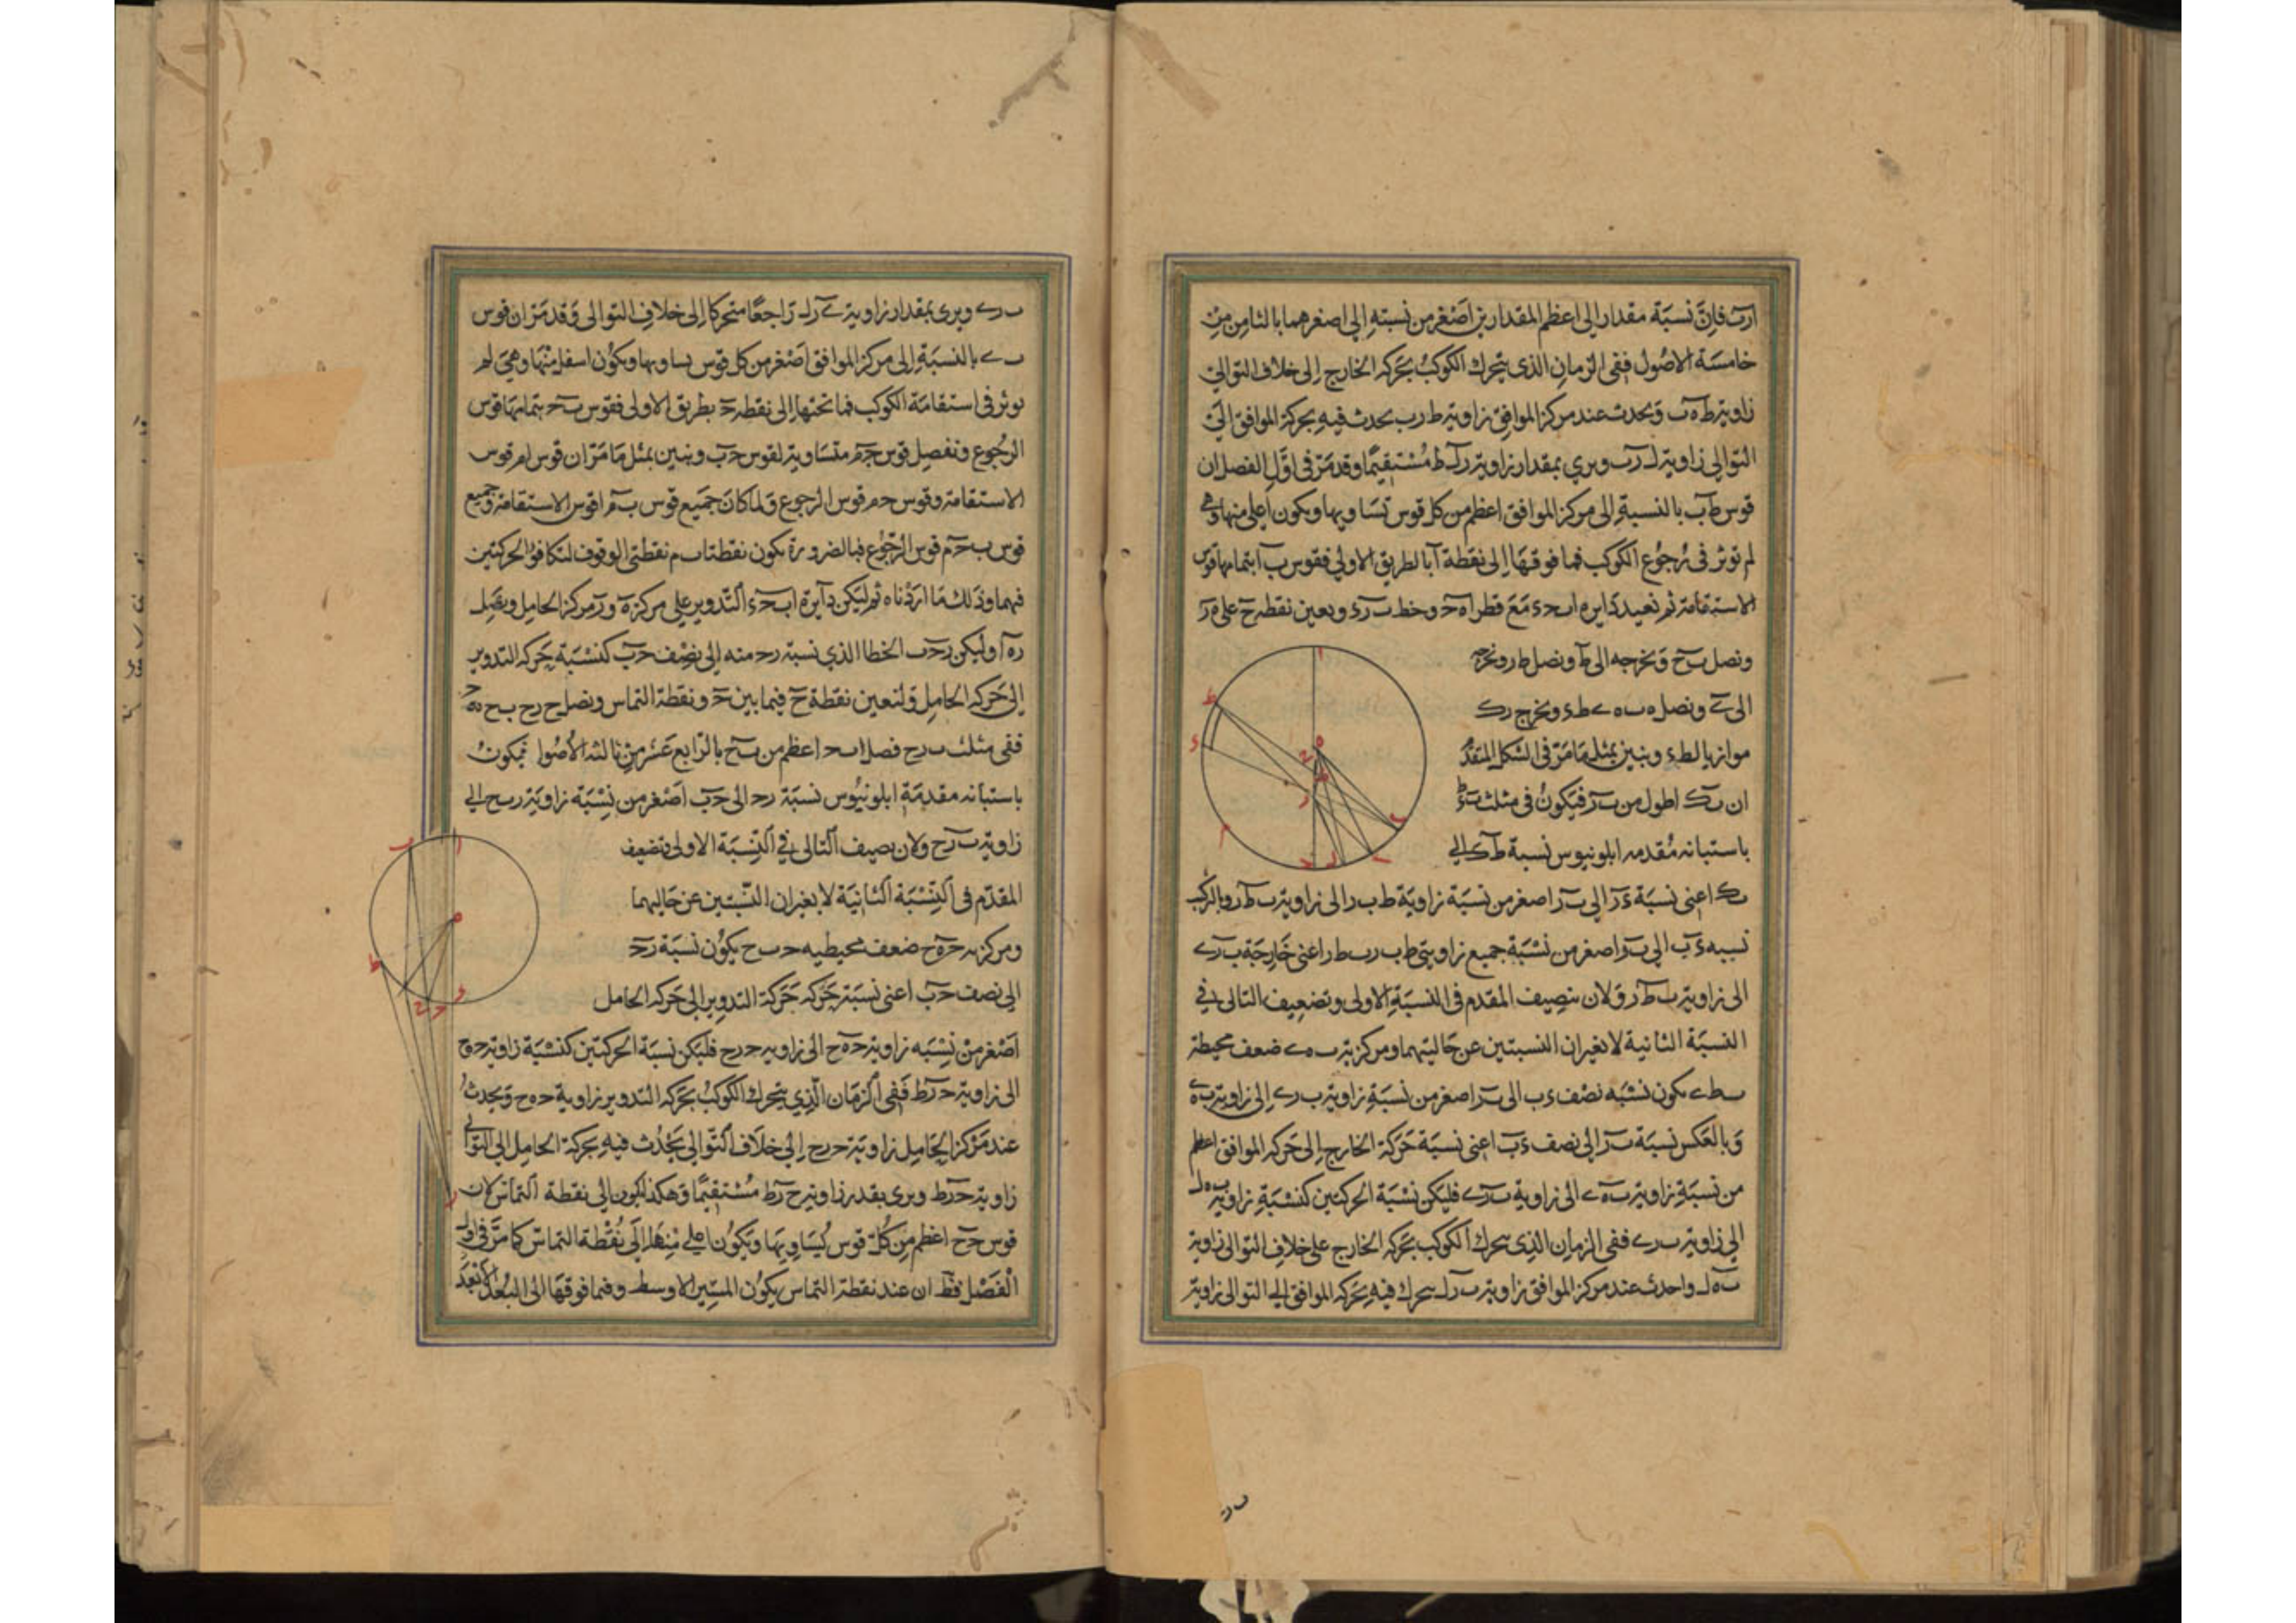 ارب فان نسبة مقدار الى اعظم المقدارين اصغر من نسبته الى اصغرهما بالثامن من
خامسة الاصول ففى الزمان الذى يتحرك الكوكب بحركه الخارج الى خلاف التوالى
زاوية طه ب ويحدث عند مركز الموافق زاوية ط رب يحدث فيه بحركة الموافق الى
التوالى زاوية ل رب ويرى بمقدار زاوية رل ط مستقيما وقد مر فى اول الفصل ان
قوس ط ب بالنسبة الى مركز الموافق اعظم من كل قوس تساويها ويكون اعلى منها وهى
لم توثر فى رجوع الكوكب فما فوقها الى نقطة ا بالطريق الاولى فقوس ب ا بتمامها قوس
الاستقامة ثم نعيد دايره ا ب ح ء مع قطر ا ه ح وخط ب ر ء ونعين نقطه ح على ه ر
ونصل ب ح ونخرجه الى ط ونصل ط ر ونخرجه
الى ى ونصل ه ب ه ى ط ء ونخرج ر ك
موازيا لط ء ونبين بمثل ما مر فى الشكل المتقدم
ان ب ك اطول من ب ر فيكون فى مثلث
باستبانه مقدمه ابلونيوس نسبة ط ك الى
ب ك اعنى نسبة ء ر الى ب ر اصغر من نسبة زاوية ط ب ر الى زاوية ب ط ر وبالتركيب
نسبه ء ب الى ب ر اصغر من نسبة جميع زاويتى ط ب ر ب ط ر اعنى خارجة ب ر ى
الى زاوية ب ط ر ولان تنصيف المقدم فى النسبة الاولى وتضعيف التالى فى
النسبة الثانية لا يغيران النسبتين عن حاليتهما ومركزية ب ه ى ضعف محيطة
ب ط ى يكون نسبه نصف ء ب الى ب ر اصغر من نسبة زاوية ب ر ى الى زاوية ب ه ى
وبالعكس نسبة ب ر الى نصف ء ب اعنى نسبة حركة الخارج الى حركه الموافق اعظم
من نسبة زاوية ب ه ى الى زاوية ب ر ى فليكن نسبة الحركتين كنسبة زاوية ب ه ل
الى زاوية ب ر ى ففى الزمان الذى يتحرك الكوكب بحركه الخارج على خلاف التوالى زاوية
ب ه ل واحدث عند مركز الموافق زاوية ب ر ل يتحرك فيه بحركه الموافق الى التوالى زاوية
ب ر ى ويرى بمقدار زاوية ى ر ل راجعا متحركا الى خلاف التوالى وقد مر ان قوس
ب ى بالنسبة الى مركز الموافق اصغر من كل قوس يساويها ويكون اسفل منها وهى لم
توثر فى استقامة الكوكب فما تحتها الى نقطه ح بطريق الاولى فقوس ب ح بتمامها قوس
الرجوع ونفصل قوس ح م متساوية لقوس ح ب ونبين بمثل ما مر ان قوس ا م قوس
الاستقامة وقوس ح م قوس الرجوع ولما كان جميع قوس ب ا م قوس الاستقامة وجميع
قوس ب ح م قوس الرجوع فبالضرورة يكون نقطتا ب م نقطتى الوقوف لتكافؤ الحركتين
فيهما وذلك ما اردناه ثم ليكن دايرة ا ب ح ء التدوير على مركز ه و ر مركز الحامل ويصل
ر ه ا وليكن ر ح ب الخط الذى نسبة ر ح منه الى نصف ح ب كنسبة حركه التدوير
الى حركه الحامل ولنعين نقطة ح فيما بين ح ونقطة التماس ونصل
ففى مثلث ب ر ح فصل ب ح اعظم من ب ح بالرابع عشر من ثالثه الاصول فيكون
باستبانه مقدمة ابلونيوس نسبة ر ح الى ح ب اصغر من نسبة زاوية ر ب ح الى
زاوية ب ر ح ولان تنصيف التالى فى النسبة الاولى وتضعيف
المقدم فى النسبة الثانية لا يغيران النسبتين عن حاليهما
ومركزية ح ه ح ضعف محيطيه ح ب ح يكون نسبة ر ح
الى نصف ح ب اعنى نسبة حركه حركة التدوير الى حركه الحامل
اصغر من نسبه زاوية ح ه ح الى زاويه ح ر ح فليكن نسبة الحركتين كنسبة زاوية ح ه ح
الى زاوية ح ر ط ففى الزمان الذى يتحرك الكوكب بحركه التدوير زاوية ح ه ح ويحدث
عند مركز الحامل زاوية ح ر ح الى خلاف التوالى يحدث فيه بحركة الحامل الى التوالى
زاوية ح ر ط ويرى بقدر زاوية ح ر ط مستقيما وهكذا يكون الى نقطة التماس لان
قوس ح ح اعظم من كل قوس يساويها ويكون اعلى منها الى نقطة التماس كما مر فى اول
الفصل فظ ان عند نقطة التماس يكون المسير الاوسط وفما فوقها الى البعد الابعد